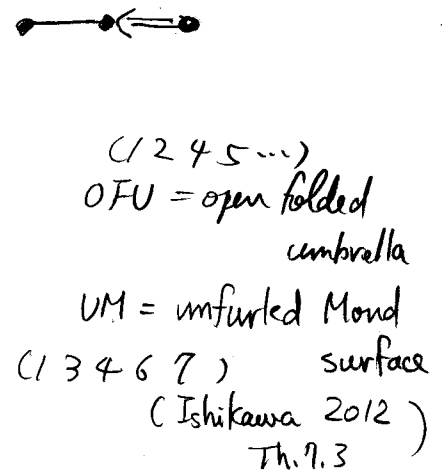 (1 2 4 5 ...)
OFU = open folded
umbrella
UM = unfurled Mond
(1 3 4 6 7) surface
(Ishikawa 2012
Th. 7.3)